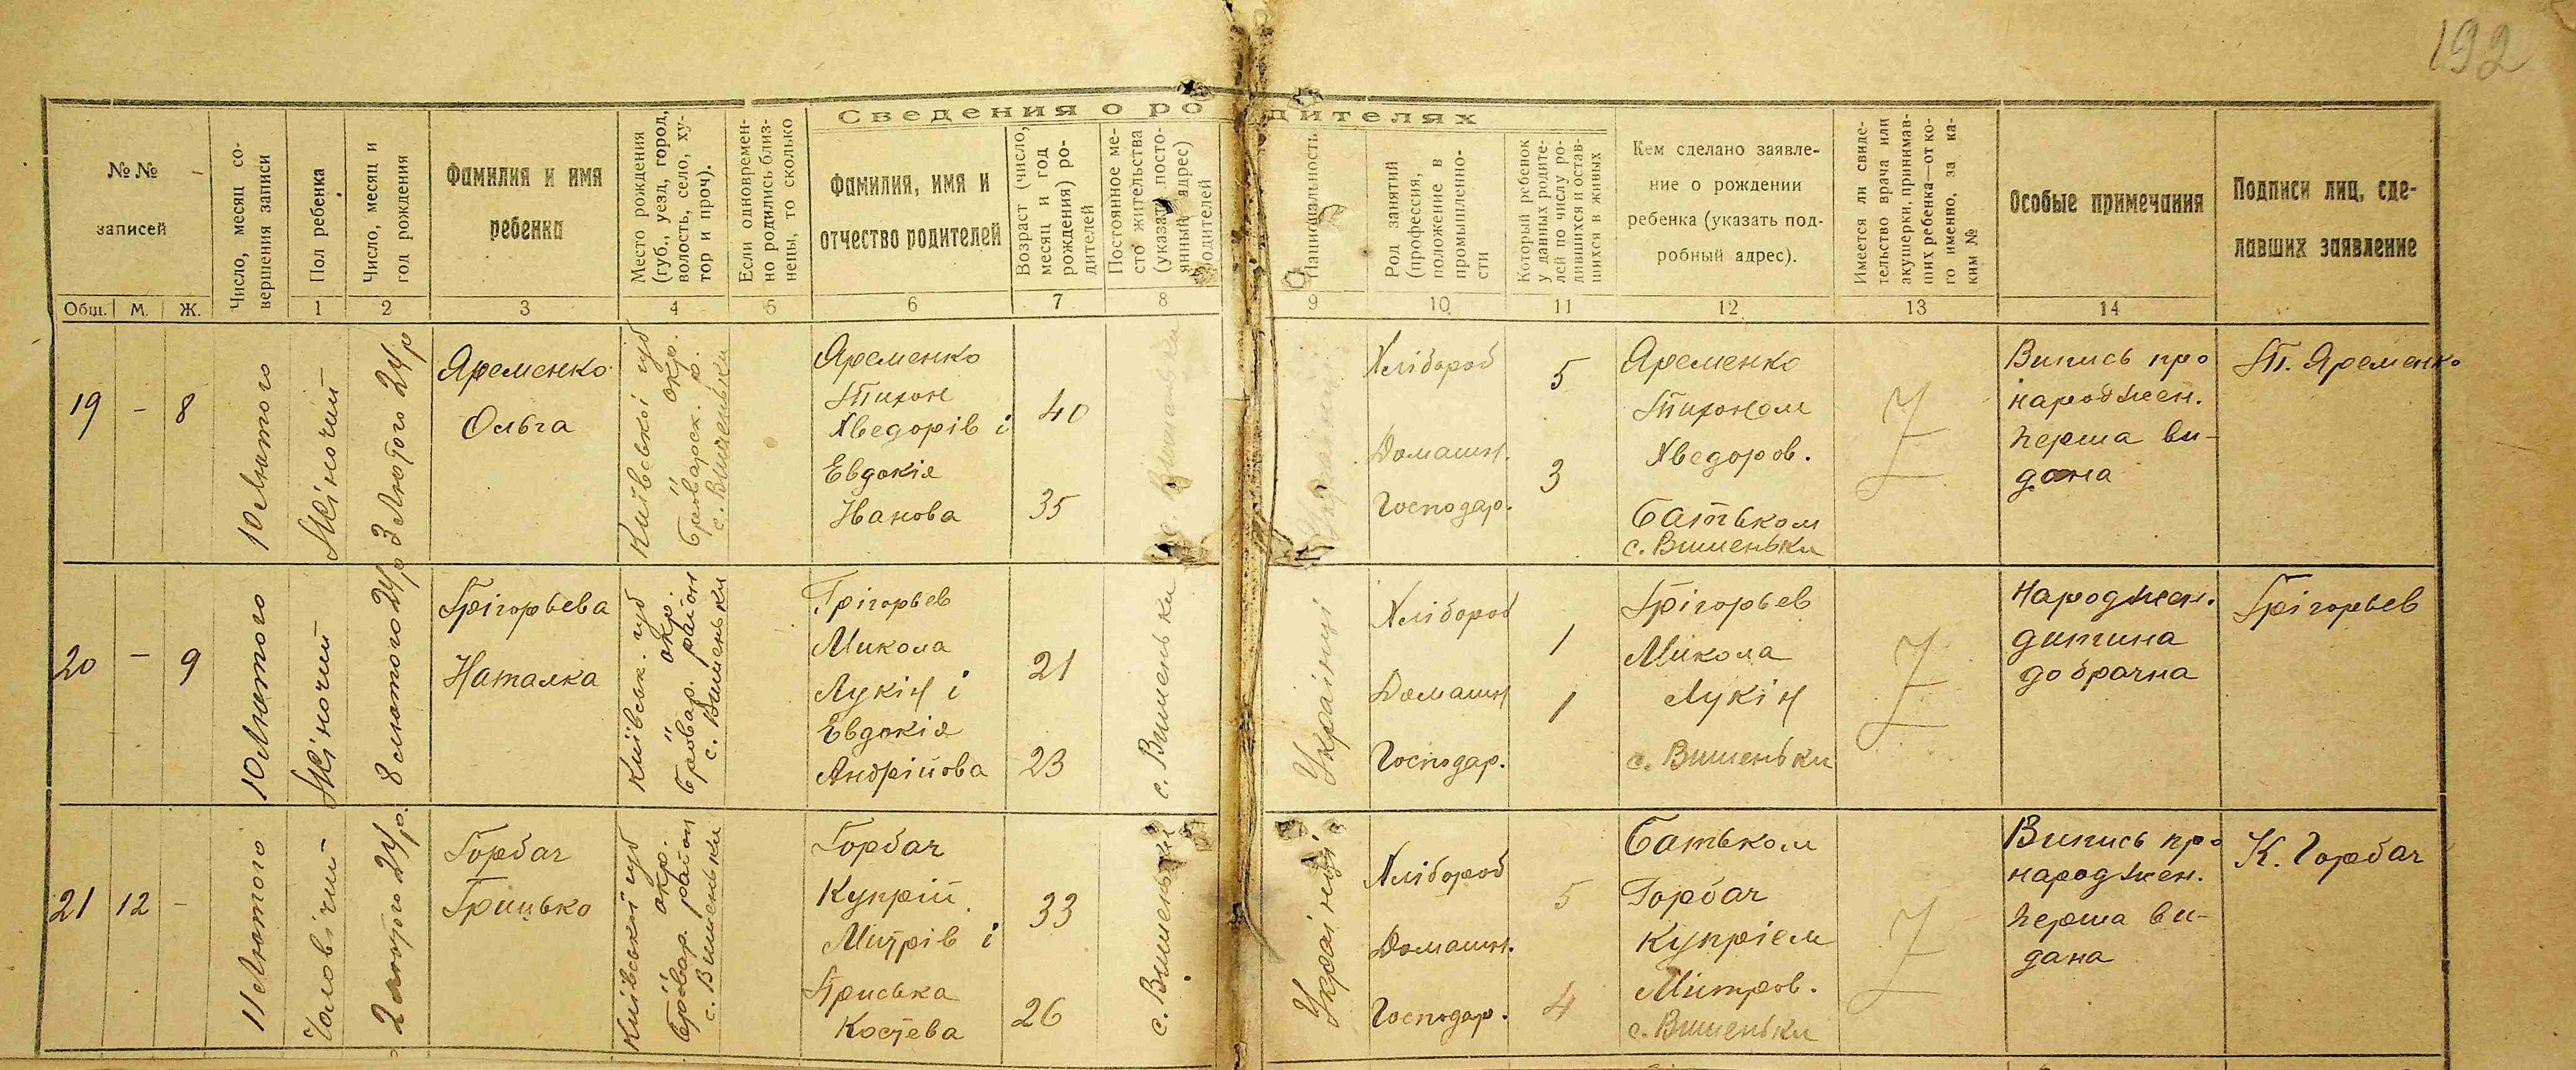 192
Сведения о родителях
№№
записей
Общ. М. Ж.
Число, месяц со-
вершения записи
Пол ребенка
1
Число, месяц и
год рождения
2
Фамилия и имя
ребенка
3
Место рождения
(губ., уезд, город,
волость, село, ху-
тор и проч).
4
Если одновремен-
но родились близ-
нецы, то сколько
5
Фамилия, имя и
отчество родителей
6
Возраст (число,
месяц и год
рождения) ро-
дителей
7
Постоянное ме-
сто жительства
(указать посто-
янный адрес)
родителей
8
Национальность
9
Род занятий
(профессия,
положение в
промышленно-
сти
10
Который ребенок
у данных родите-
лей по числу ро-
дившихся и остав-
шихся в живых
11
Кем сделано заявле-
ние о рождении
ребенка (указать под-
робный адрес).
12
Имеется ли свиде-
тельство врача или
акушерки, принимав-
ших ребенка—от ко-
го именно, за ка-
ким №
13
Особые примечания
14
Подписи лиц, сде-
лавших заявление
19 - 8
10 Лютого
Жіночий
3 Лютого 24 р
Яременко
Ольга
Київської губ
" окр.
Броварск. р.
с. Вишеньки
Яременко
Тихон
Хведорів і
Евдокія
Іванова
40
35
с. Вишеньки
Українці
Хлібороб
Домашн.
Господар.
5
3
Яременко
Тихоном
Хведоров.
Батьком
с. Вишеньки
Випись про
народжен.
перша ви-
дана
Т. Яременко
20 - 9
10 Лютого
Жіночий
8 лютого 24 р
Грігорьева
Наталка
Київськ. губ
" окр.
Бровар. район
с. Вишеньки
Грігорьев
Микола
Лукін і
Евдокія
Андрійова
21
23
с. Вишеньки
Українці
Хлібороб
Домашн
Господар.
1
1
Грігорьев
Микола
Лукін
с. Вишеньки
Народжен.
дитина
добрачна
Грігорьев
21 12 -
11 Лютого
Чоловічий
2 лютого 24 р.
Горбач
Грицько
Київської губ
" окр.
Бровар. район
с. Вишеньки
Горбач
Купрій
Митрів і
Приська
Костева
33
26
с. Вишеньки
Українці
Хлібороб
Домашн.
Господар.
5
4
Батьком
Горбач
Купрієм
Митров.
с. Вишеньки
Випись про
народжен.
перша ви-
дана
К. Горбач